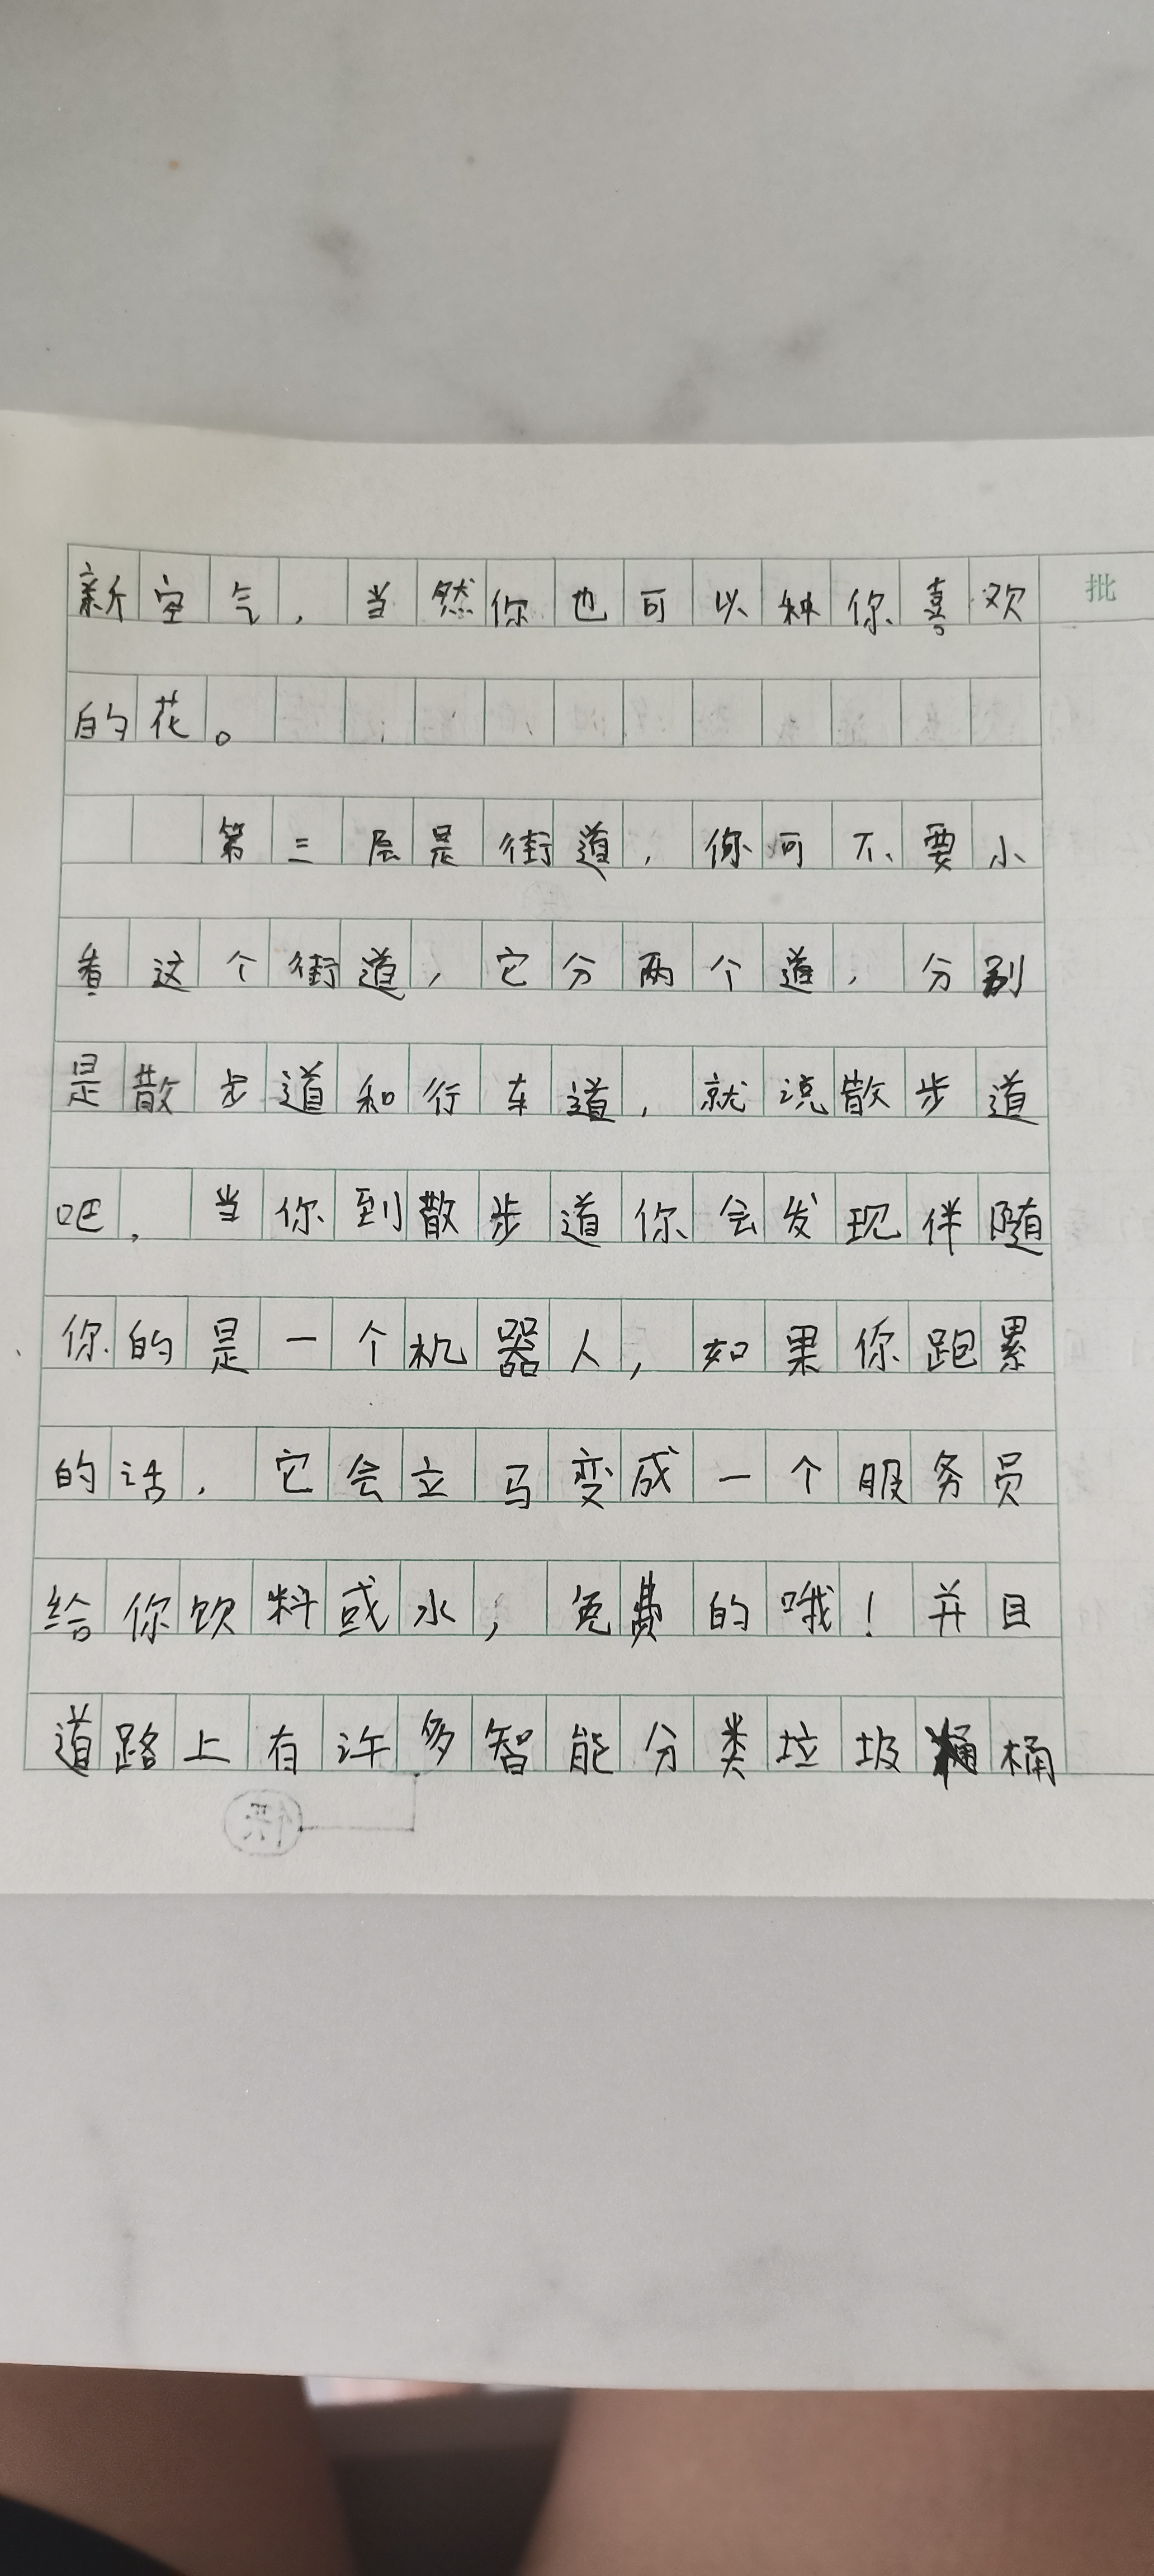 新空气，当然你也可以种你喜欢
批
的花。
第三层是街道，你可不要小
看这个街道，它分两个道，分别
是散步道和行车道，就说散步道
吧，当你到散步道你会发现伴随
你的是一个机器人，如果你跑累
的话，它会立马变成一个服务员
给你饮料或水，免费的哦！并且
道路上有许多智能分类垃圾桶